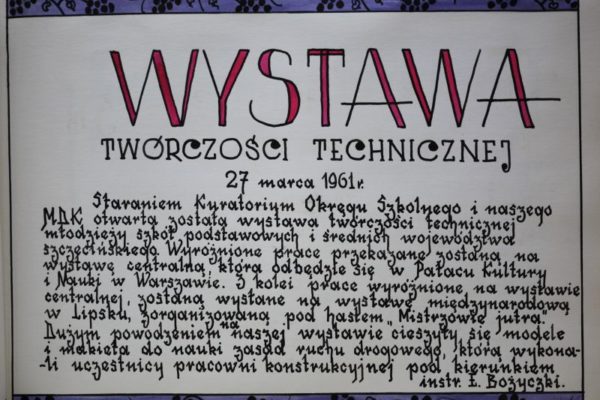 WYSTAWA
TWÓRCZOŚCI TECHNICZNEJ
27 marca 1961r.
Staraniem Kuratorium Okręgu Szkolnego i naszego
MDK otwarta została wystawa twórczości technicznej
młodzieży szkół podstawowych i średnich województwa
szczecińskiego. Wyróżnione prace przekazane zostaną na
wystawę centralną, która odbędzie się w Pałacu Kultury
i Nauki w Warszawie. Z kolei prace wyróżnione na wystawie
centralnej, zostaną wysłane na wystawę międzynarodową
w Lipsku, zorganizowaną pod hasłem „Mistrzowie jutra".
Dużym powodzeniem na naszej wystawie cieszyły się modele
i makieta do nauki zasad ruchu drogowego, którą wykona-
li uczestnicy pracowni konstrukcyjnej pod kierunkiem
instr. Ł. Bożyczki.